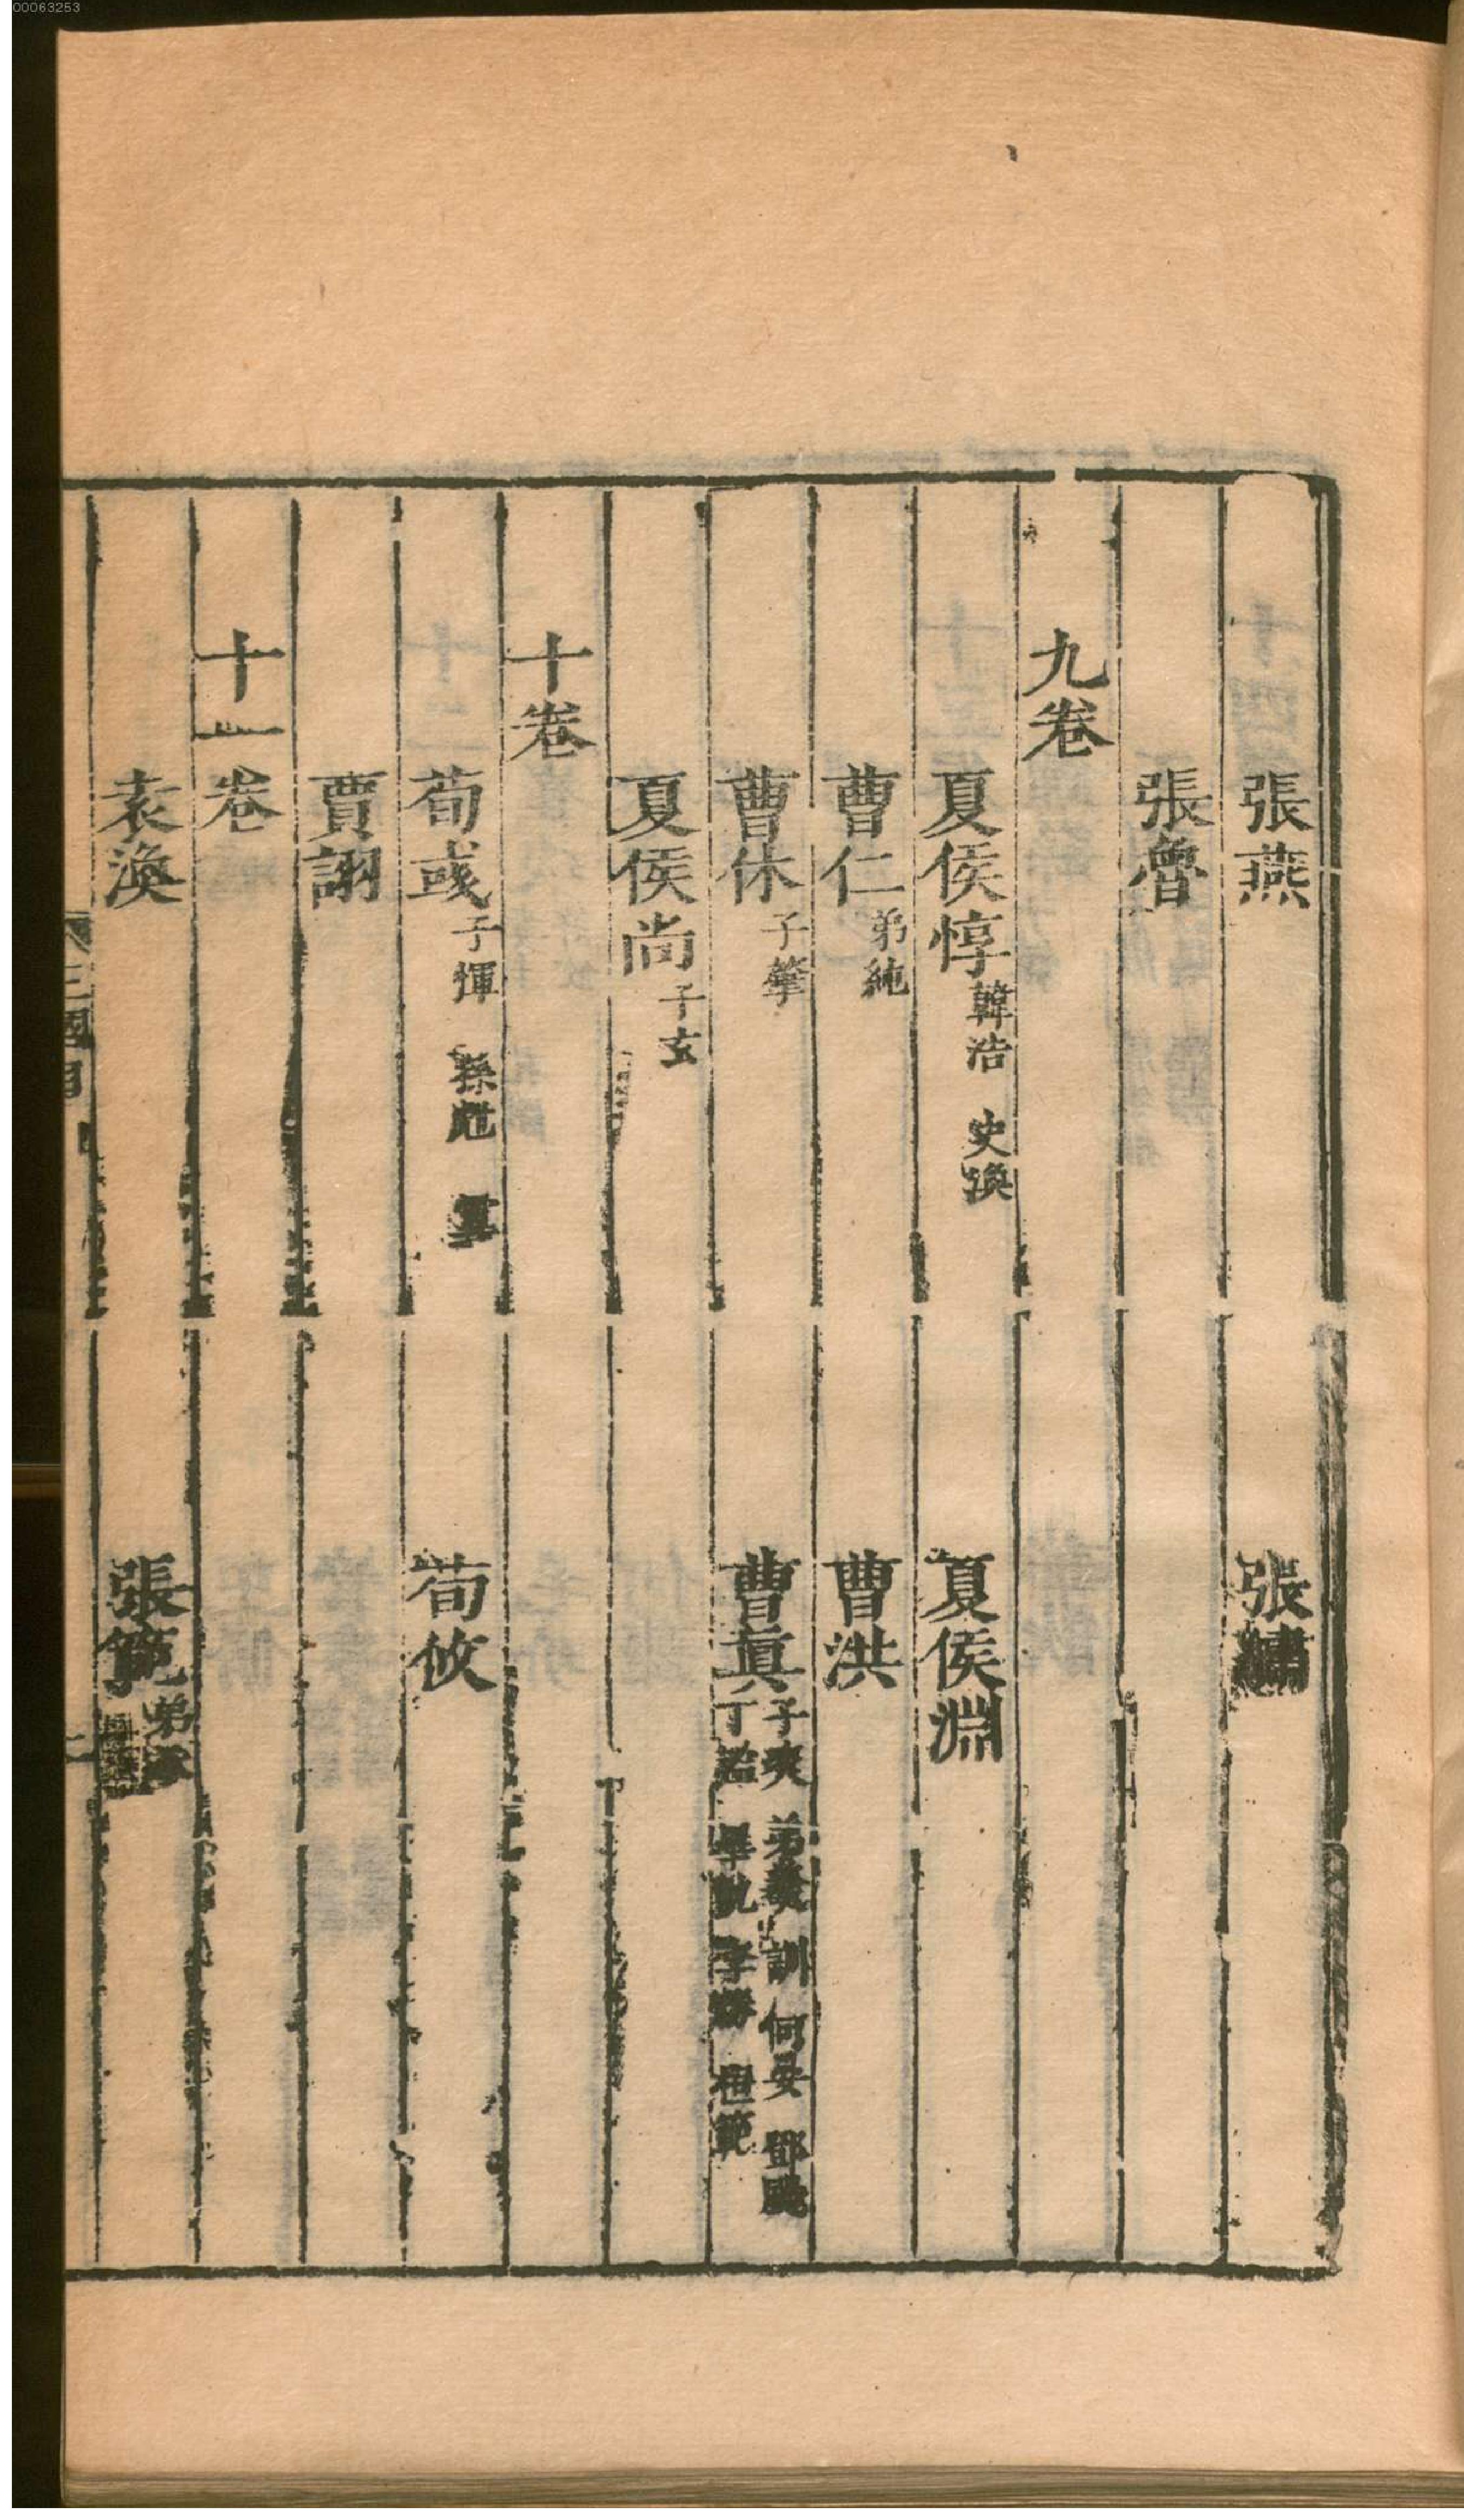 00063253
張燕　張繡
張魯
九卷
夏侯惇韓浩　史渙　夏侯淵
曹仁弟純　曹洪
曹休子肇　曹眞子爽　弟羲　訓　何晏　鄧颺
丁謐　畢軌　李勝　桓範
夏侯尚子玄
十卷
荀彧子惲　孫甝　荀攸
賈詡
十一卷
袁渙　張範弟承
三國目